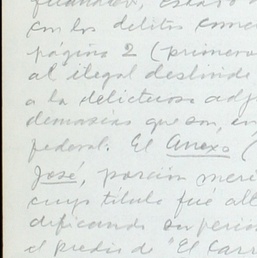 con los delitos come
página 2 (primera
al ilegal deslinde
a la delictuosa adj
demasías que son, en
federal. El Anexo (
José, porción meri
cuyo título fué alt
dificando su perio
el predio de "El Carr